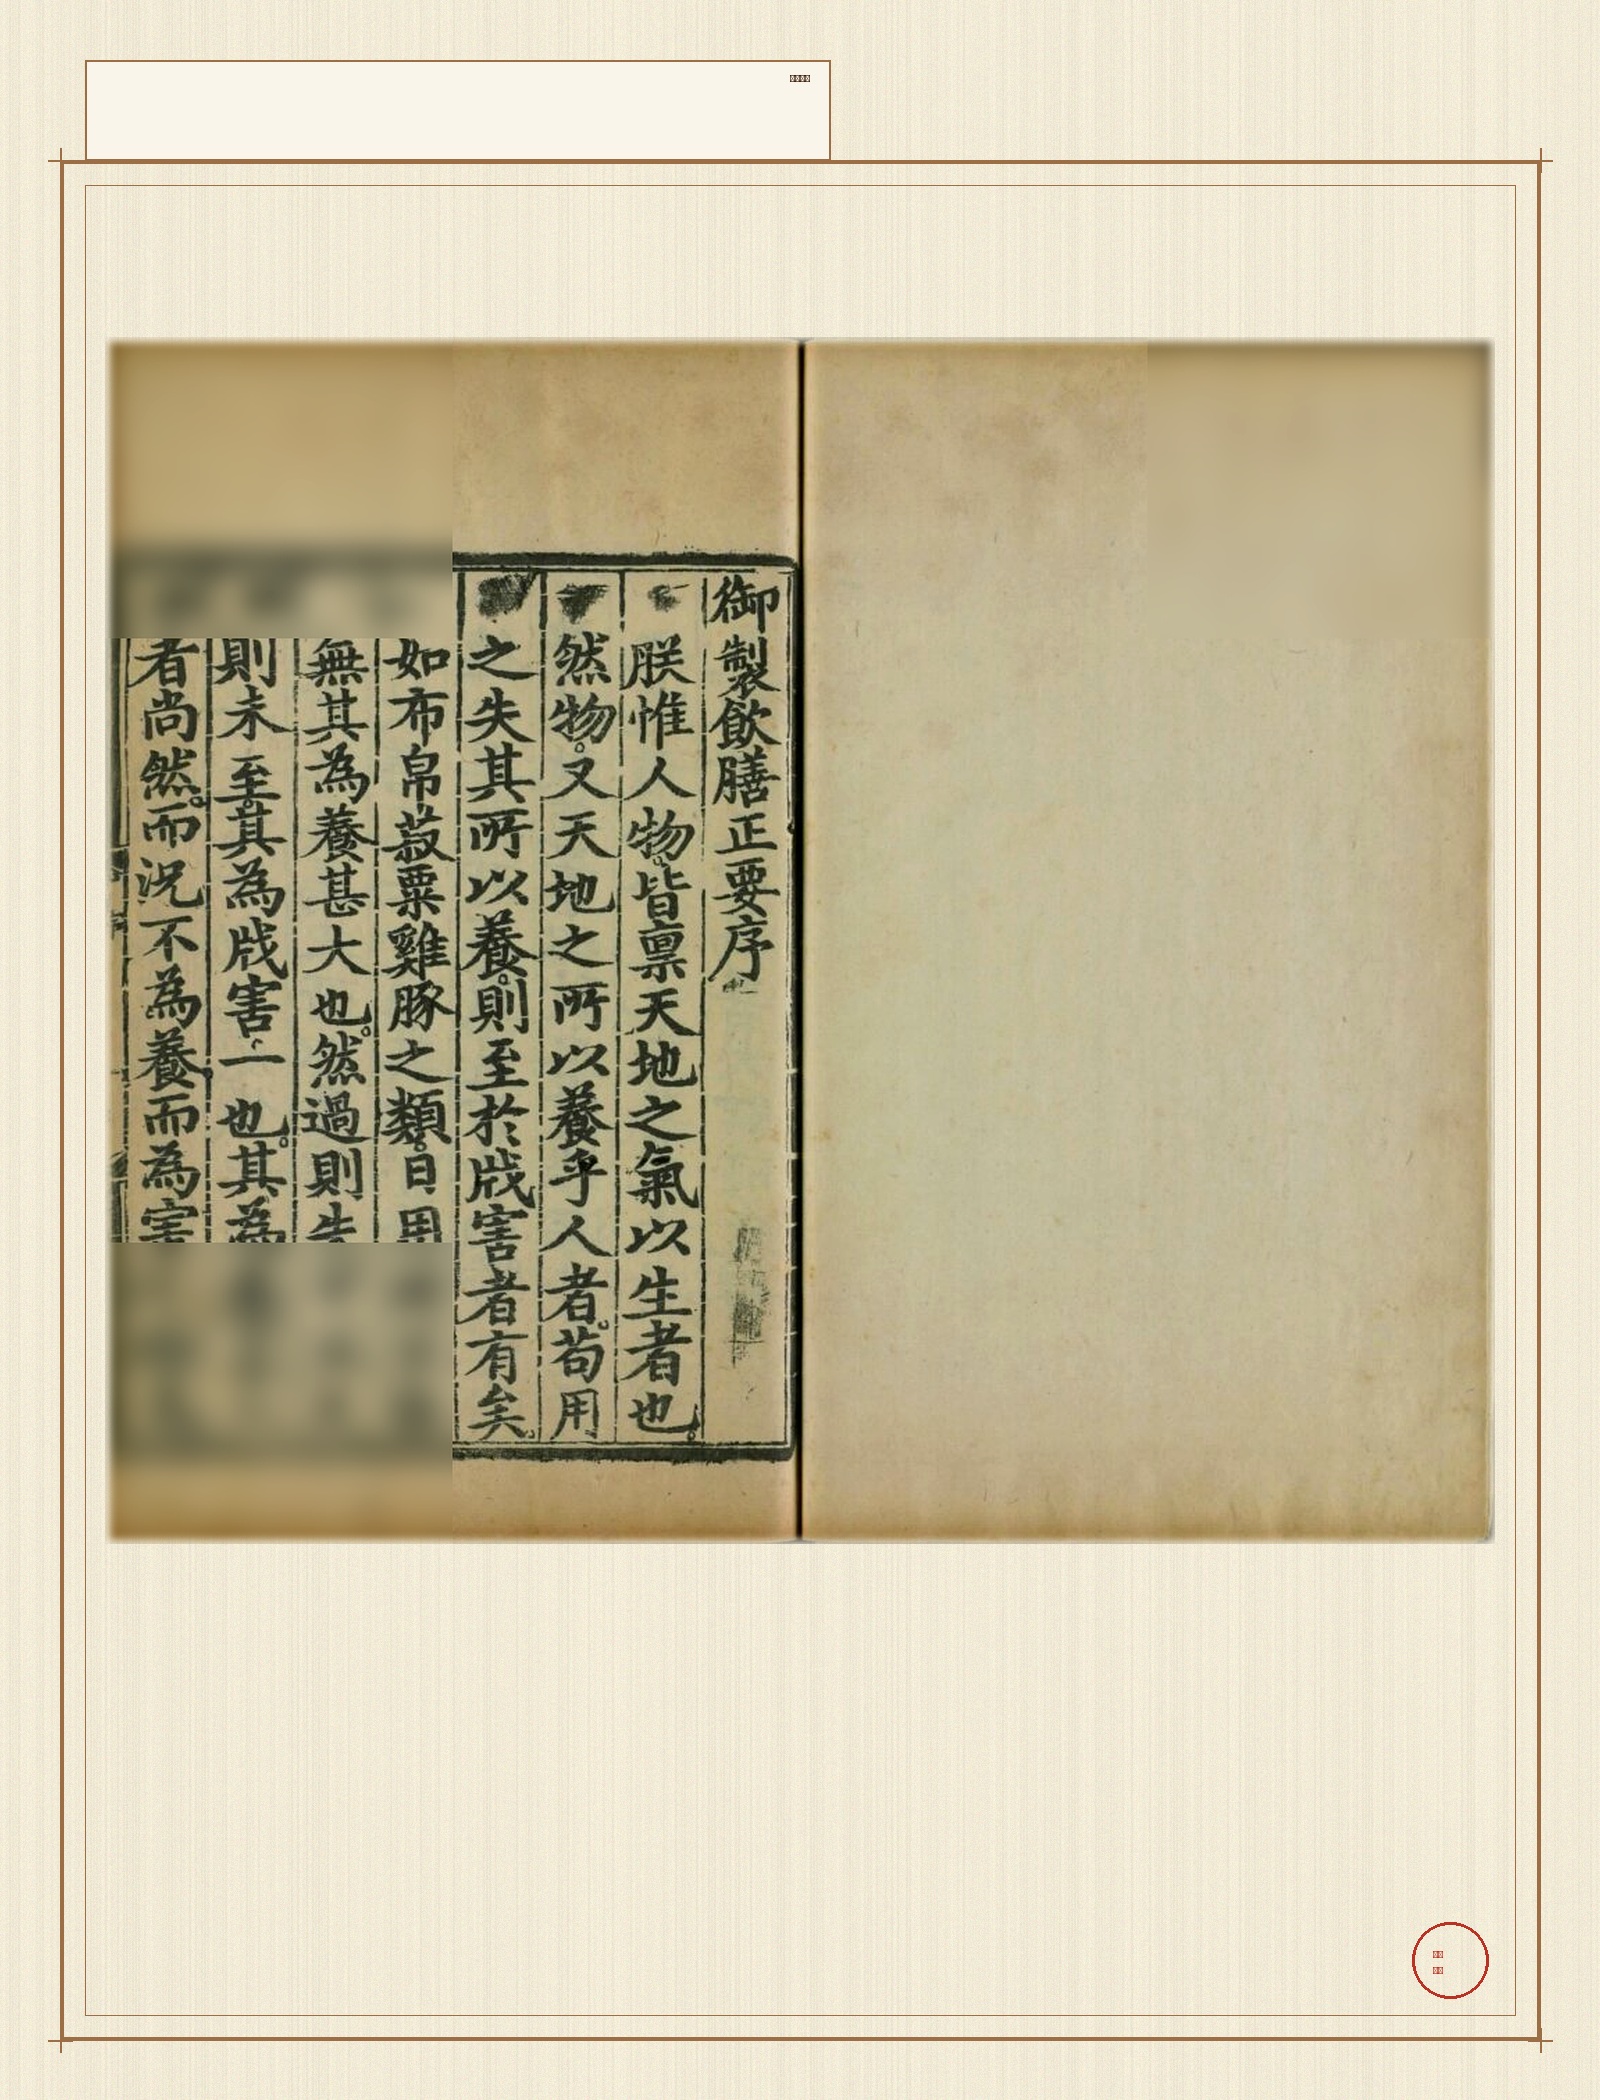 御製飲膳正要序
朕惟人物。皆禀天地之氣以生者也。
然物。又天地之所以養乎人者。苟用
之失其所以養。則至於戕害者有矣。
如布帛菽粟雞豚之類。日用
無其為養甚大也。然過則失
則未至。其為戕害一也。其為
者尚然。而況不為養而為害